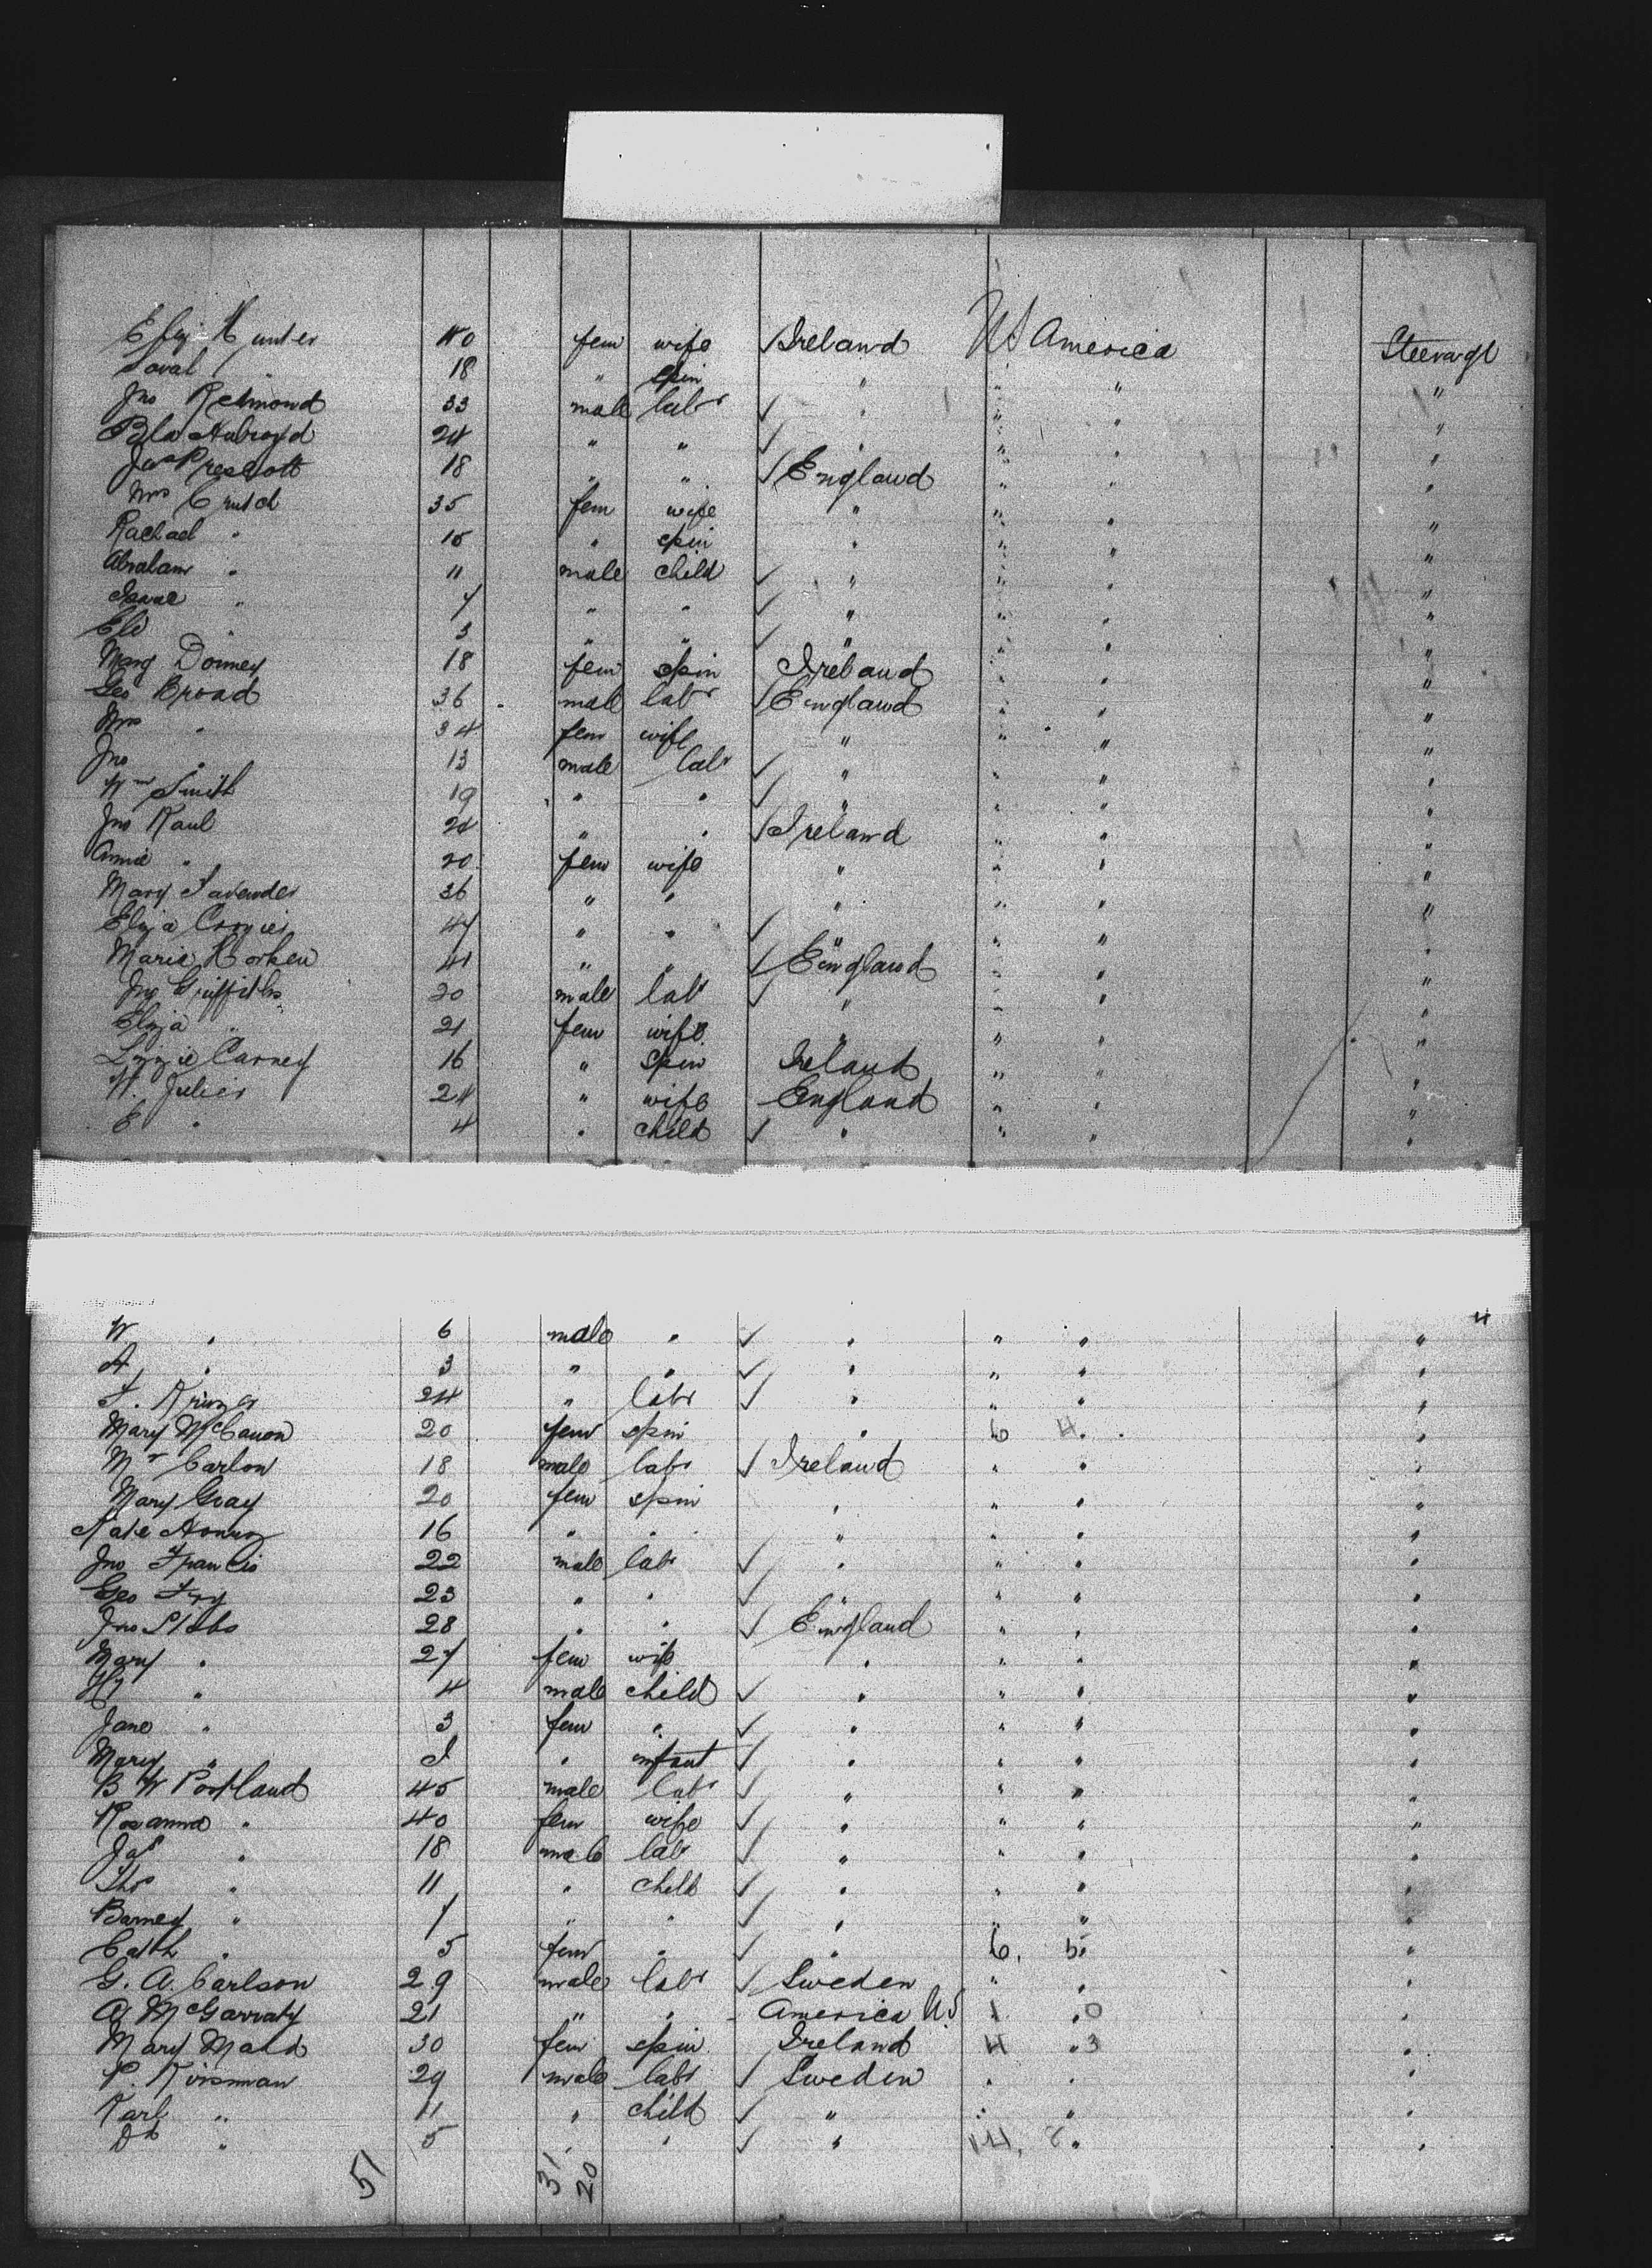 Eliz Hunter 40 fem wife Ireland US America Steerage
Sarah " 18 " spin " " " "
Jno Redmond 33 male labr " " " "
24 " " " " " "
Jas Prescott 18 " " England " " "
Mrs Crutch 35 fem wife " " " "
Rachael " 15 " spin " " " "
Abraham " 11 male child " " " "
Isaac " 7 " " " " " "
Eli " 3 " " " " " "
Marg Donney 18 fem spin Ireland " " "
Geo Broad 36 male labr England " " "
Mrs " 34 fem wife " " " "
Jno " 13 male labr " " " "
Wm Smith 19 " " " " " "
Jno Kaul 24 " " Ireland " " "
Annie " 20 fem wife " " " "
Mary Lavender 36 " " " " " "
Eliza 47 " " " " " "
Maria Horken 41 " " England " " "
Jno Griffiths 20 male labr " " " "
Eliza " 21 fem wife " " " "
Lizzie Carney 16 " spin Ireland " " "
H. Julier 24 " wife England " " "
E " 4 " child " " " "
4
W " 6 male " " " " "
A " 3 " " " " " "
24 " labr " " " "
Mary McCanon 20 fem spin " 6 4 "
Mr Carlon 18 male labr Ireland " " "
Mary Gray 20 fem spin " " " "
Kate 16 " " " " " "
Jno Francis 22 male labr " " " "
Geo Fry 23 " " " " " "
Jno Stubs 28 " " England " " "
Mary " 27 fem wife " " " "
Hy " 4 male child " " " "
Jane " 3 fem " " " " "
Mary " " infant " " " "
B W Portland 45 male labr " " " "
Rosanna " 40 fem wife " " " "
Jas " 18 male labr " " " "
Thos " 11 " child " " " "
Barney " 7 " " " " " "
Cath " 5 fem " " 6. 5 "
G. A. Carlson 29 male labr Sweden " " "
A McGarraty 21 " " America US 1 0 "
Mary Maad 30 fem spin Ireland 4 3 "
P. Kirsman 29 male labr Sweden " " "
Karl " 11 " child " " " "
" 5 " " " 14. 8 "
51 31 20